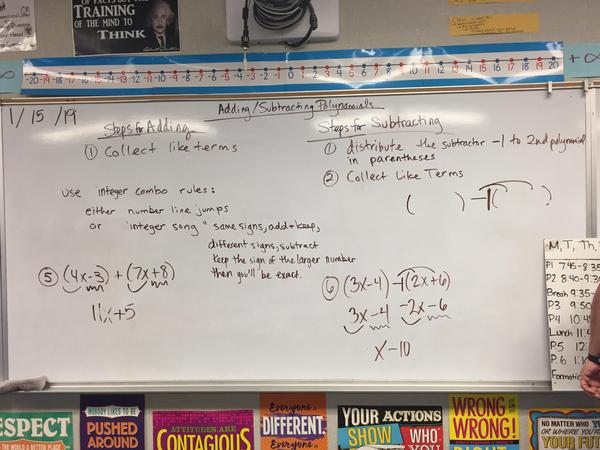 TRAINING
OF THE MIND TO
THINK
-20 -19 -18 -17 -16 -15 -14 -13 -12 -11 -10 -9 -8 -7 -6 -5 -4 -3 -2 -1 0 1 2 3 4 5 6 7 8 9 10 11 12 13 14 15 16 17 18 19 20
∞
+∞
1/15/19
Adding/Subtracting Polynomials
Steps for Adding
① Collect like terms
use integer combo rules:
either number line jumps
or "integer song" same signs, add + keep,
different signs, subtract
keep the sign of the larger number
then you'll be exact.
⑤ (4x-3) + (7x+8)
11x+5
Steps for Subtracting
① distribute the subtractor -1 to 2nd polynomial
in parentheses
② Collect Like Terms
( ) -1( )
⑥ (3x-4) -1(2x+6)
3x-4 -2x-6
x-10
M, T, Th,
P1 7:45-8:35
P2 8:40-9:3
Break 9:35-
P3 9:50
P4 10:45
Lunch 11:4
P.5 12:
P.6 1:10
Formatio
ESPECT
NOBODY LIKES TO BE
PUSHED
AROUND
ATTITUDES ARE
CONTAGIOUS
Everyone is
DIFFERENT.
Everyone is
YOUR ACTIONS
SHOW WHO
YOU
WRONG!
WRONG!
RIGHT
NO MATTER WHO
OR WHERE YOU'RE
YOUR FUTU